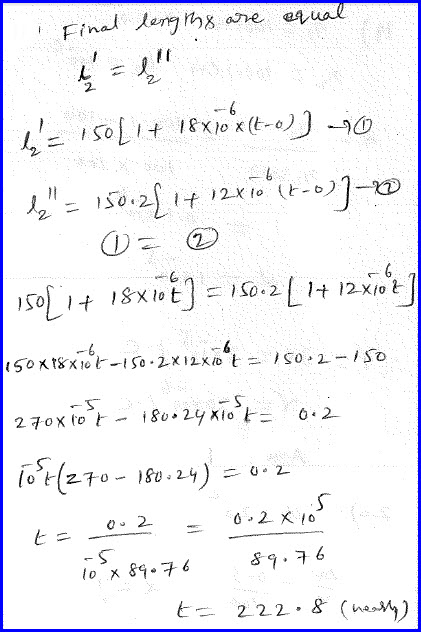 Final lengths are equal
l₂' = l₂''
l₂' = 150[1 + 18×10⁻⁶×(t-0)] → ①
l₂'' = 150.2[1 + 12×10⁻⁶(t-0)] → ②
① = ②
150[1 + 18×10⁻⁶t] = 150.2[1 + 12×10⁻⁶t]
150×18×10⁻⁶t - 150.2×12×10⁻⁶t = 150.2 - 150
270×10⁻⁵t - 180.24×10⁻⁵t = 0.2
10⁻⁵t(270 - 180.24) = 0.2
t = 0.2 / (10⁻⁵ × 89.76) = 0.2 × 10⁵ / 89.76
t = 222.8 (nearly)